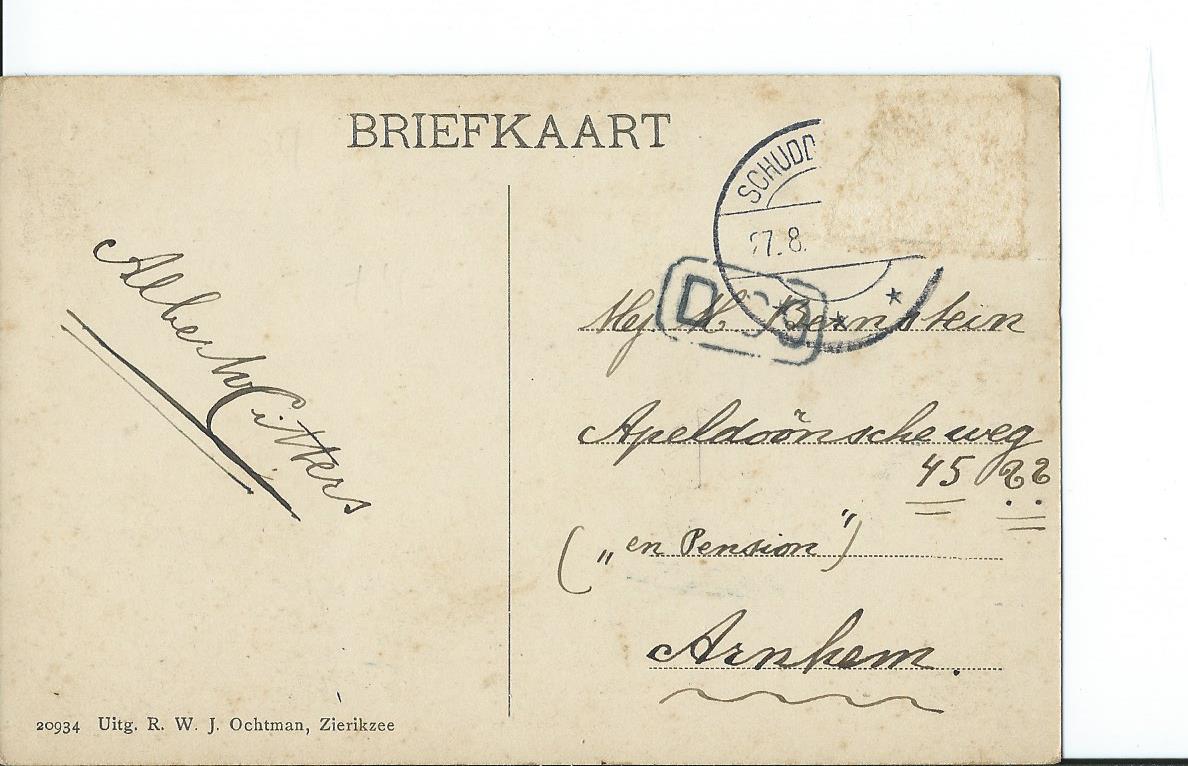 BRIEFKAART
SCHUDD
7.8.
D
Albert Citters
Mej. H. Bernstein
Apeldoornsche weg
45 ??
(„en Pension")
Arnhem.
20934 Uitg. R. W. J. Ochtman, Zierikzee